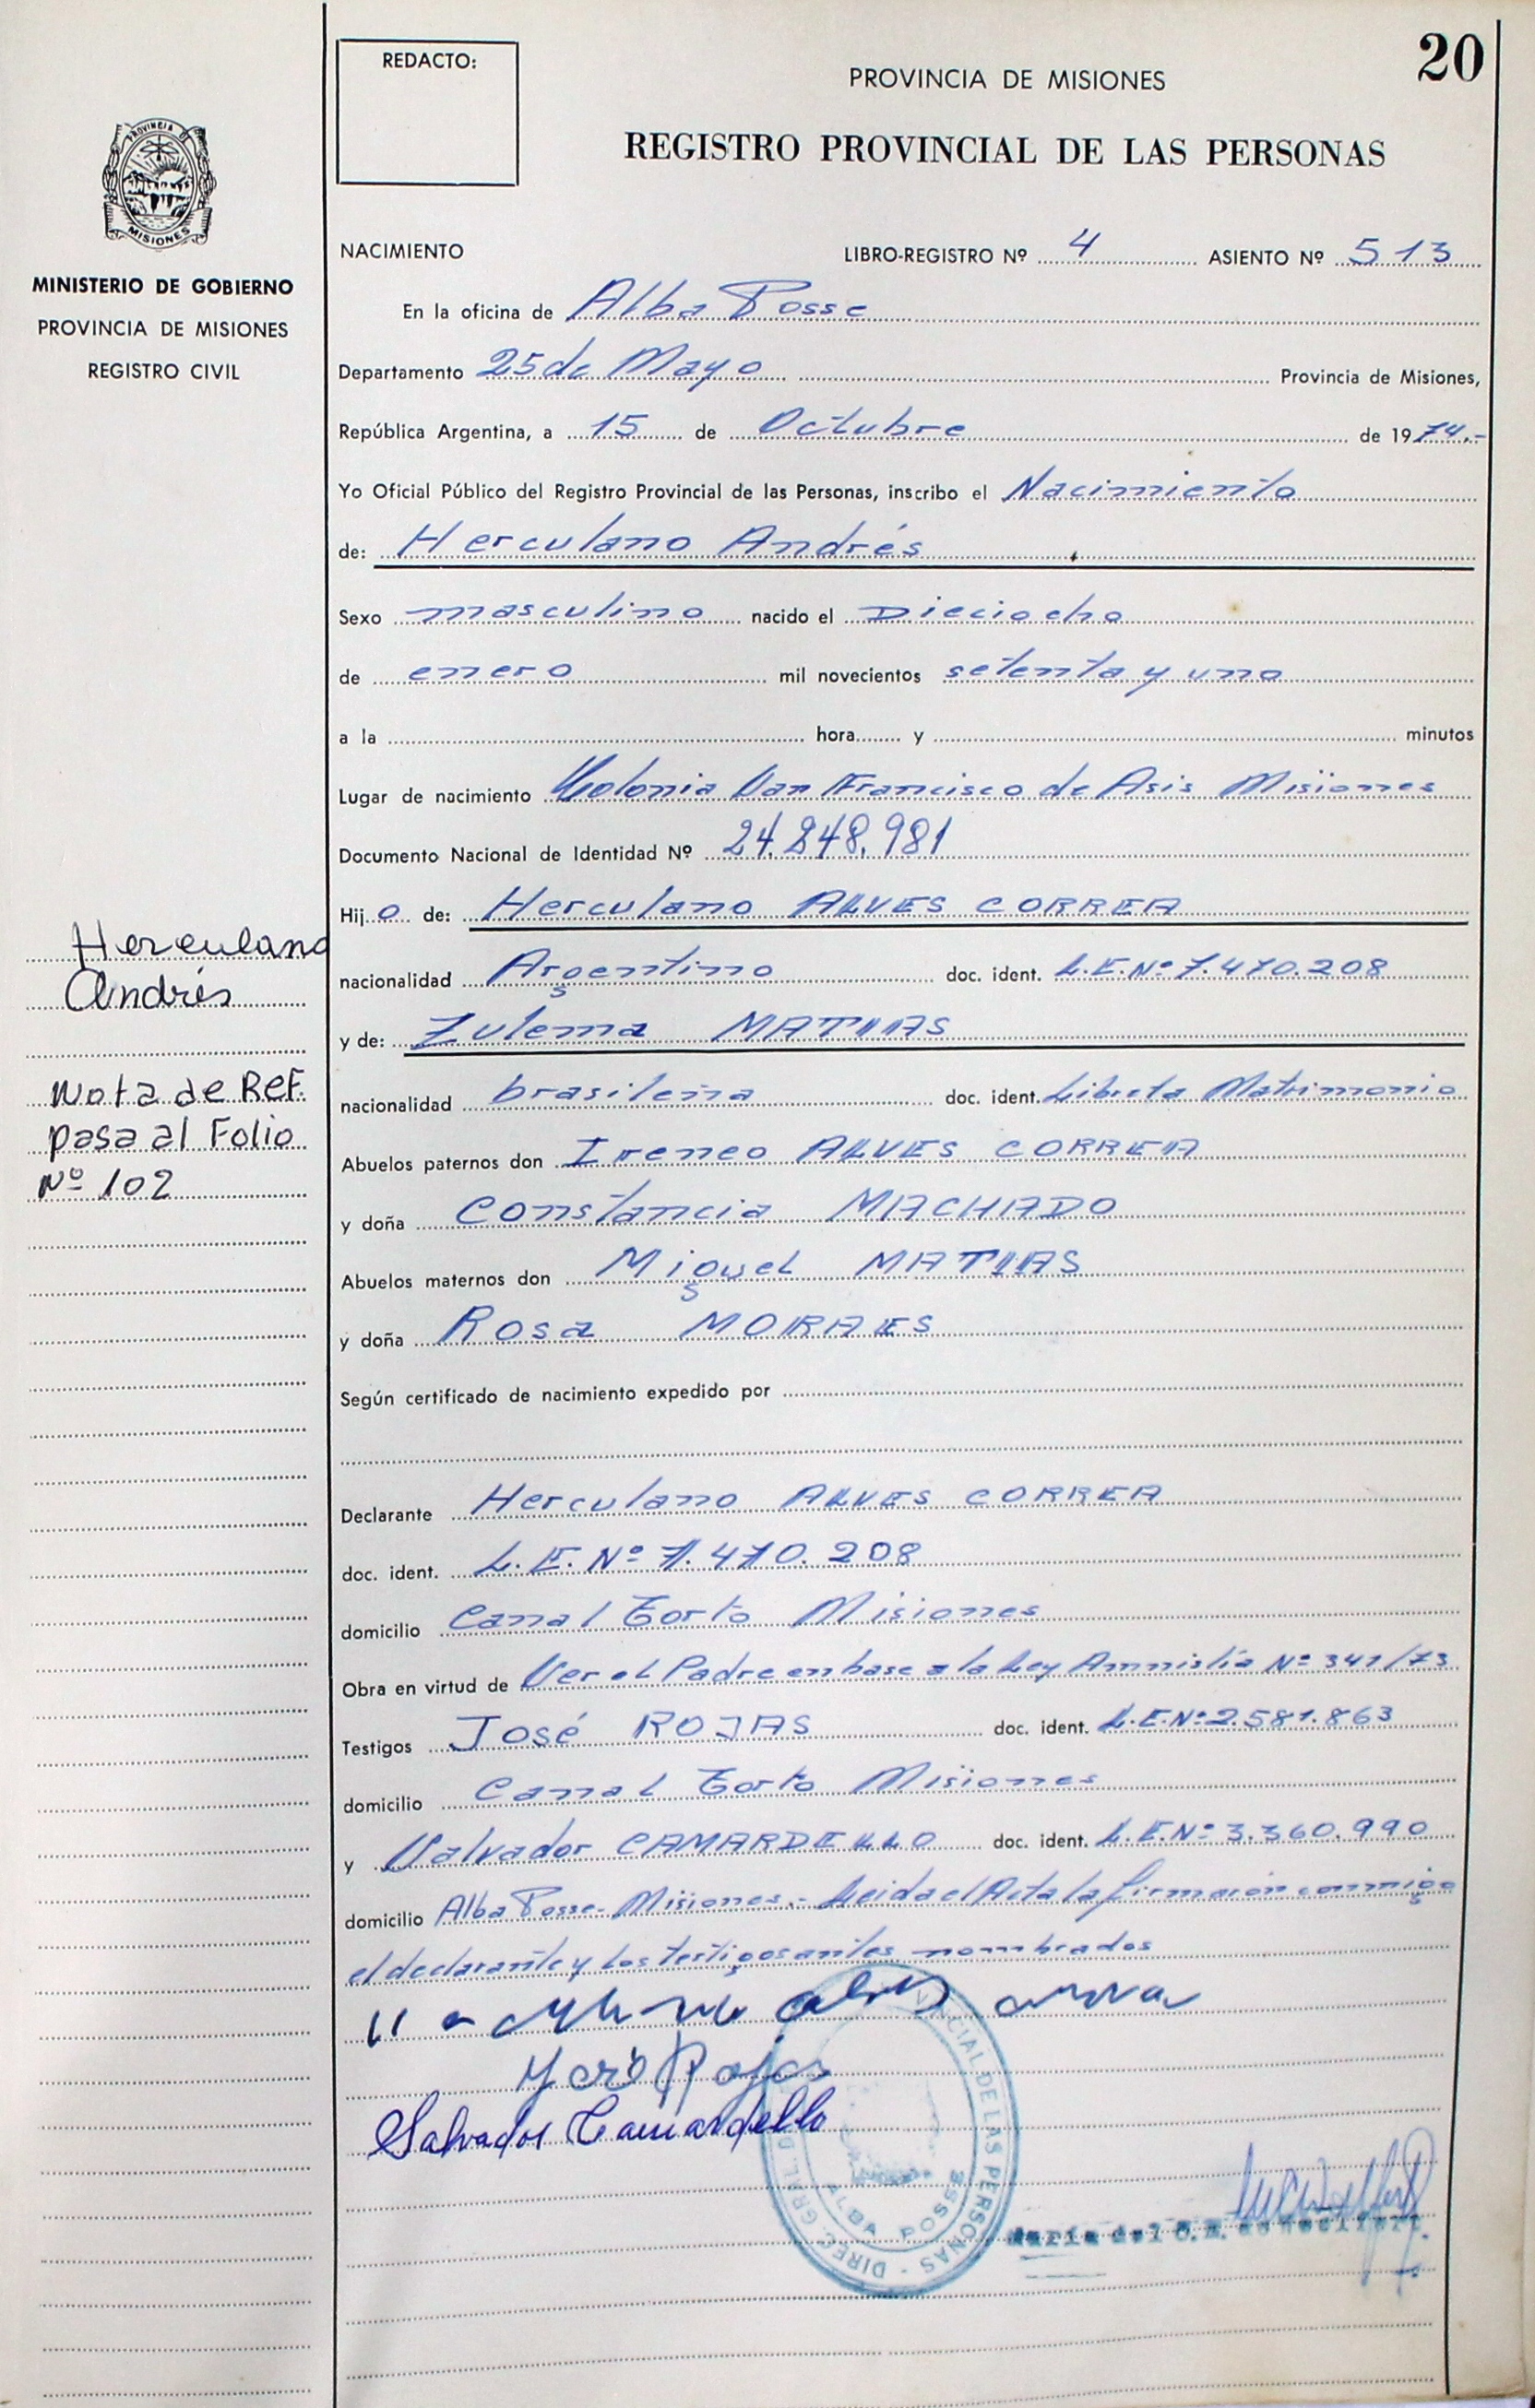 20
REDACTO:
PROVINCIA DE MISIONES
REGISTRO PROVINCIAL DE LAS PERSONAS
PROVINCIA D MISIONES
MINISTERIO DE GOBIERNO
PROVINCIA DE MISIONES
REGISTRO CIVIL
NACIMIENTO LIBRO-REGISTRO Nº 4 ASIENTO Nº 513
En la oficina de Alba Posse
Departamento 25 de Mayo Provincia de Misiones,
República Argentina, a 15 de Octubre de 1974.-
Yo Oficial Público del Registro Provincial de las Personas, inscribo el Nacimiento
de: Herculano Andrés
Sexo masculino nacido el Dieciocho
de enero mil novecientos setenta y uno
a la hora y minutos
Lugar de nacimiento Colonia San Francisco de Asis Misiones
Documento Nacional de Identidad Nº 24.848.981
Hijo de: Herculano ALVES CORREA
nacionalidad Argentino doc. ident. L.E.Nº 7.470.208
y de: Zulema MATIAS
nacionalidad brasileña doc. ident. Libreta Matrimonio
Abuelos paternos don Ireneo ALVES CORREA
y doña Constancia MACHADO
Abuelos maternos don Miguel MATIAS
y doña Rosa MORAES
Según certificado de nacimiento expedido por
Declarante Herculano ALVES CORREA
doc. ident. L.E. Nº 7.470.208
domicilio Canal Torto Misiones
Obra en virtud de Ser el Padre en base a la Ley Amnistía Nº 341/73
Testigos José ROJAS doc. ident. L.E.Nº 2.581.863
domicilio Canal Torto Misiones
y Salvador CAMARDELLO doc. ident. L.E.Nº 3.360.990
domicilio Alba Posse- Misiones.- Leida el Acta la firmaron conmigo
el declarante y los testigos antes nombrados
José Rojas
Salvador Camardello
VINCIAL DE LAS PERSONAS - DIREC. GRAL. D
ALBA POSSE
Maria del C. M. de
Herculano
Andrés
Nota de Ref.
pasa al Folio
Nº 102